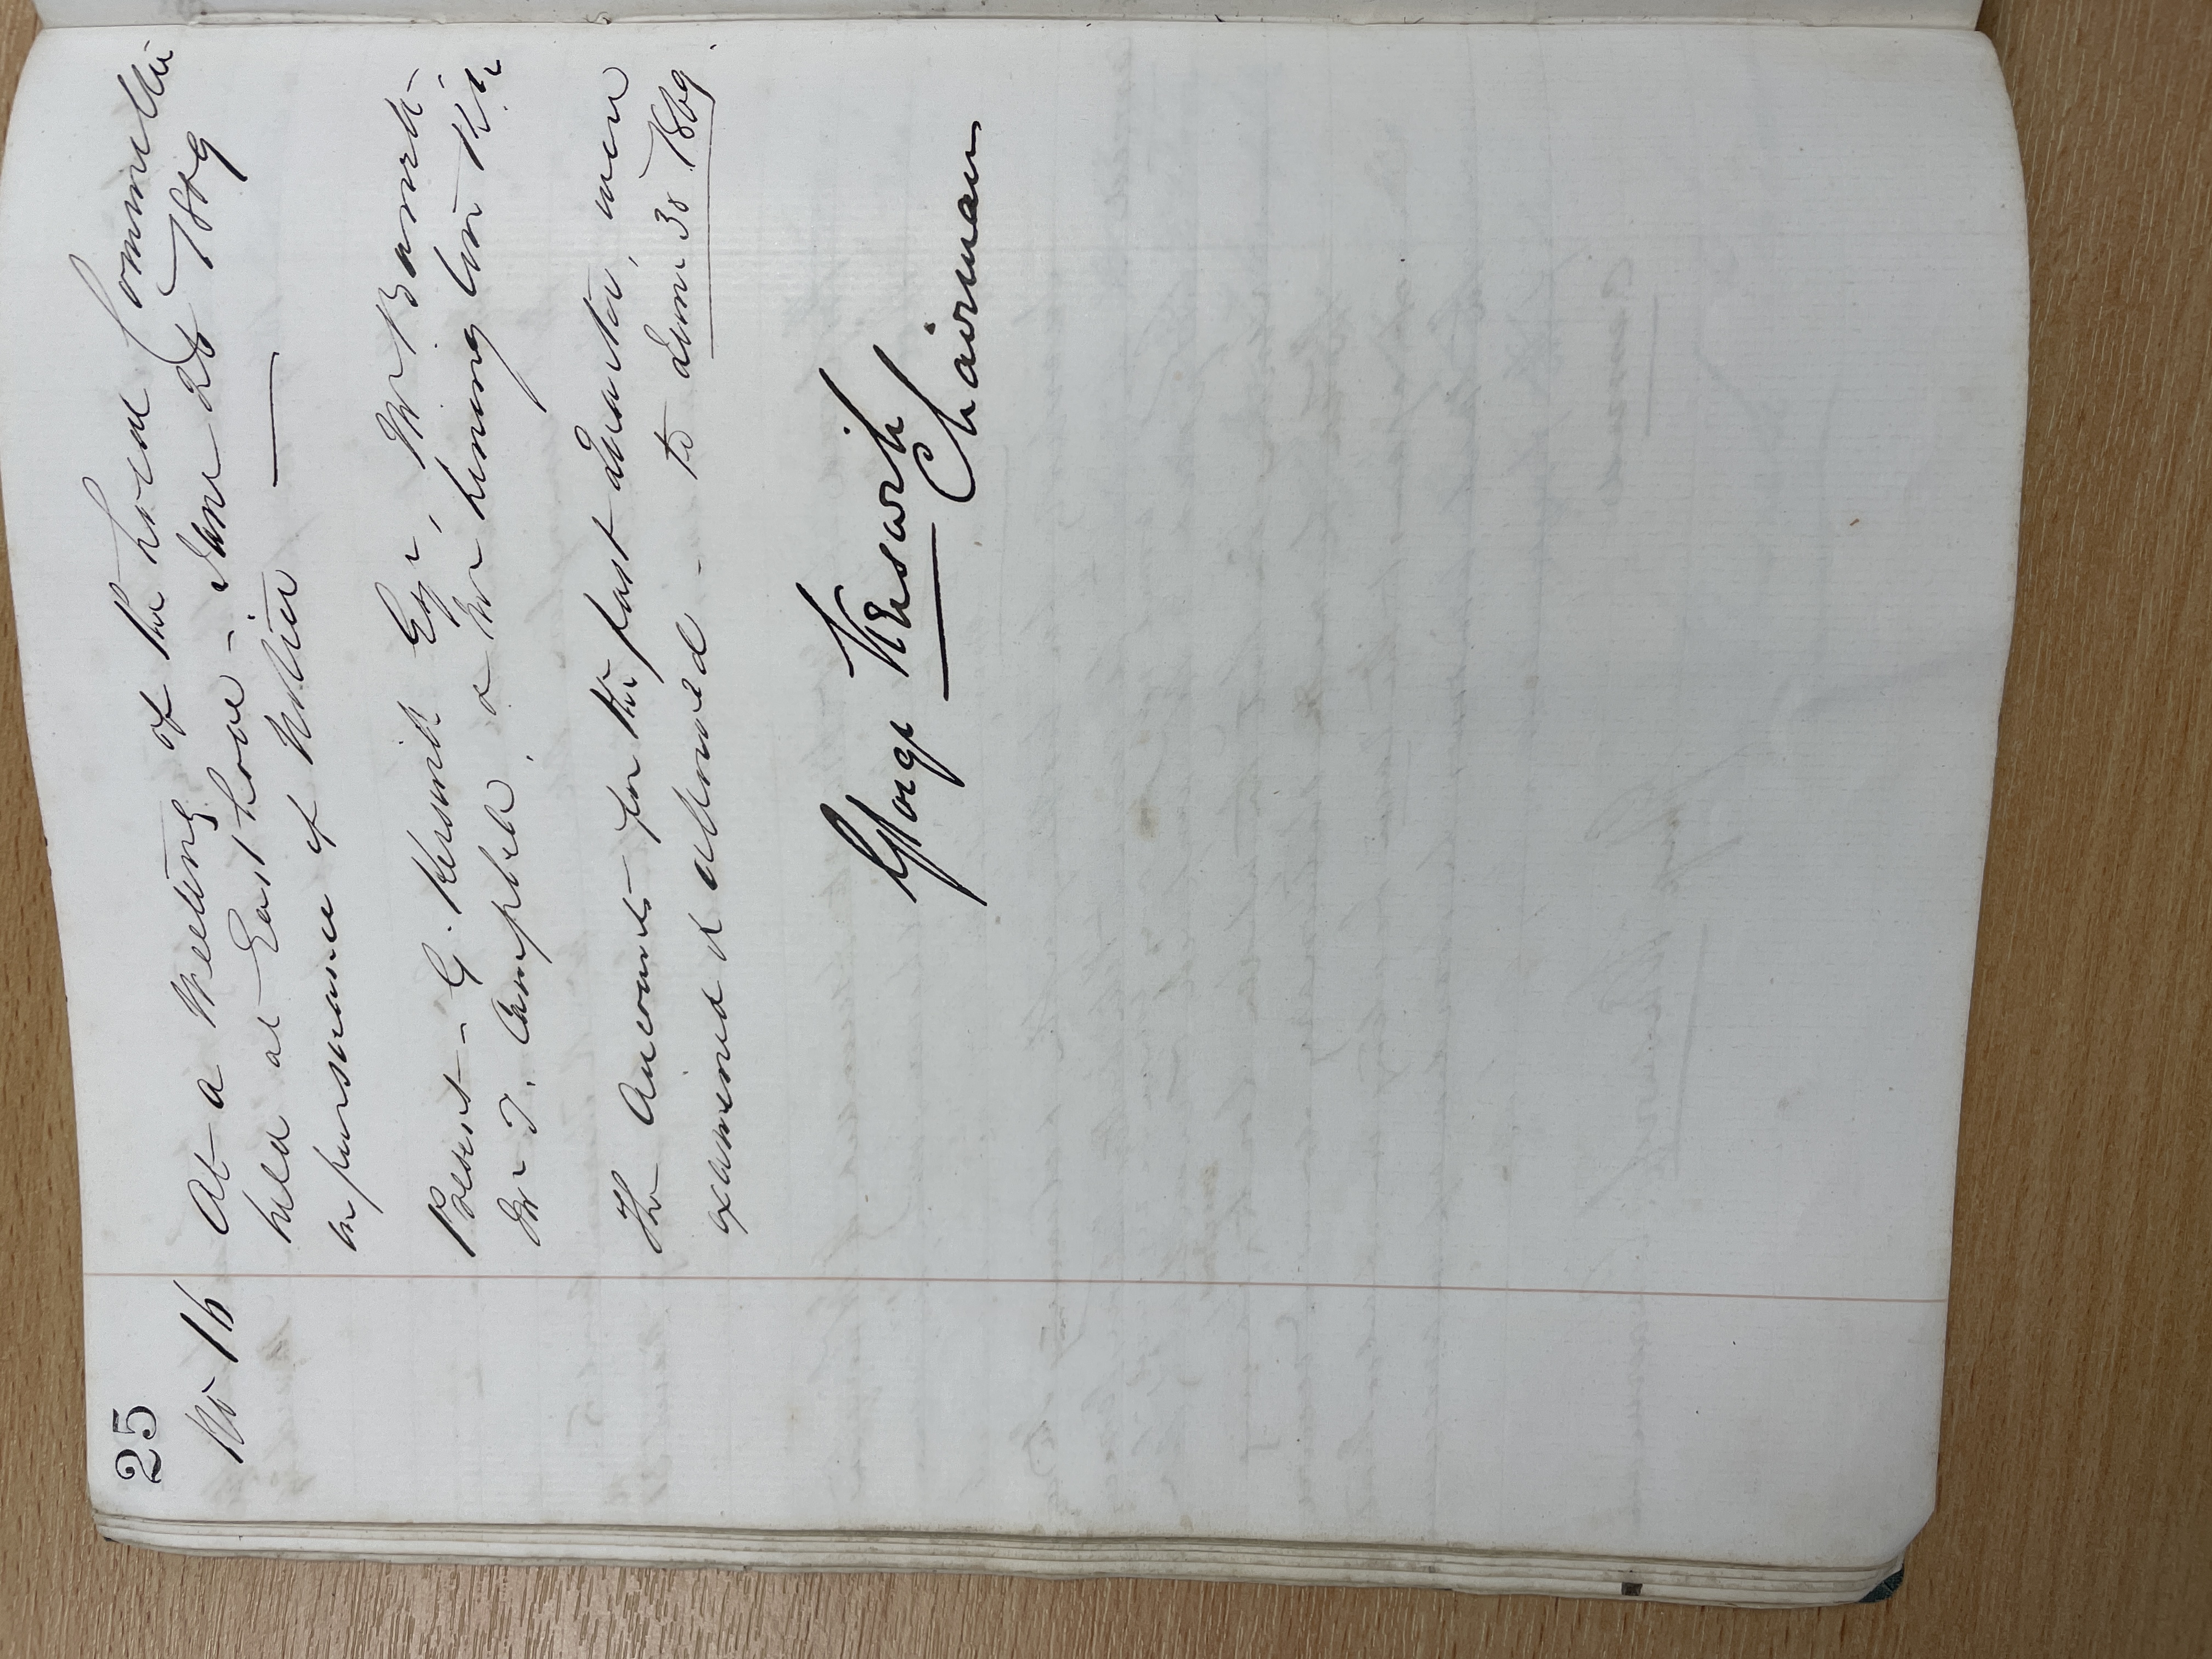 25
No 16 At a Meeting of the Local Committee
held at East hove - June 28 1869
in pursuance of Notice
Present - G. Keswick Esqr, Mr Barnett-
Mr J. Campbell, & Mr
The Accounts for the past Quarter, were
examined & allowed - to June 30 1869
George Keswick
Chairman